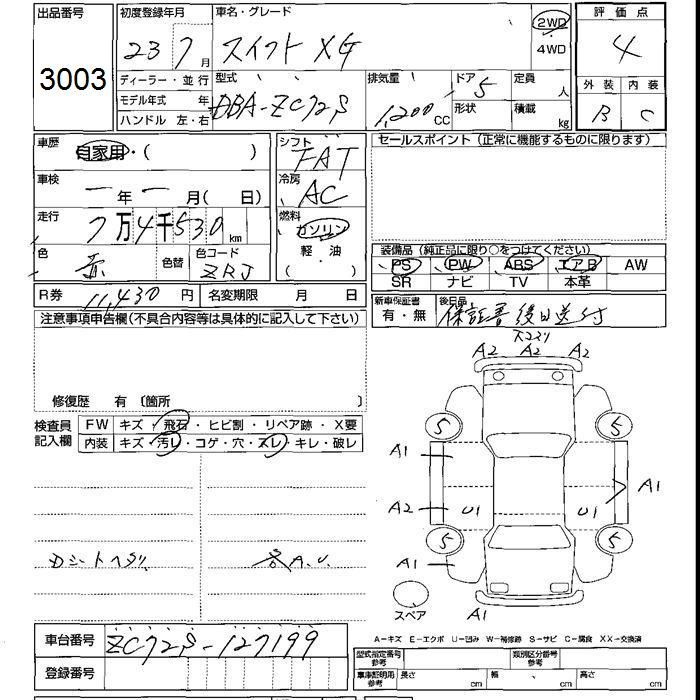 出品番号 初度登録年月 車名・グレード 評価点
3003 23 7月 スイフト XG 2WD 4WD 4
ディーラー・並行 型式 排気量 ドア 5 定員 人 外装 内装
モデル年式 年 DBA-ZC72S 1,200 CC 形状 積載 kg B C
ハンドル 左・右
車歴 自家用・( ) シフト FAT セールスポイント(正常に機能するものに限ります)
車検 ー年ー月(日) 冷房 AC
走行 7万4千530km 燃料 ガソリン 軽・油 ( )
色 赤 色替 色コード ZRJ 装備品(純正品に限り○をつけてください)
PS PW ABS エアB AW
SR ナビ TV 本革
R券 11,430円 名変期限 月 日 新車保証書 有・無 後日品 保証書後日送付
注意事項申告欄(不具合内容等は具体的に記入して下さい)
修復歴 有 〔箇所 〕
検査員記入欄 FW キズ・飛石・ヒビ割・リペア跡・X要
内装 キズ・汚レ・コゲ・穴・スレ・キレ・破レ
A2 A2 A2
5 5
A1 A1
A2 U1 U1
5 5
A1
スペア A1
Dシートヘタリ 各A.U.
A−キズ E−エクボ U−凹み W−補修跡 S−サビ C−腐食 XX−交換済
車台番号 ZC72S-127199
登録番号
型式指定番号 参考 類別区分番号 参考
車庫証明用 参考 長さ cm 幅 cm 高さ cm